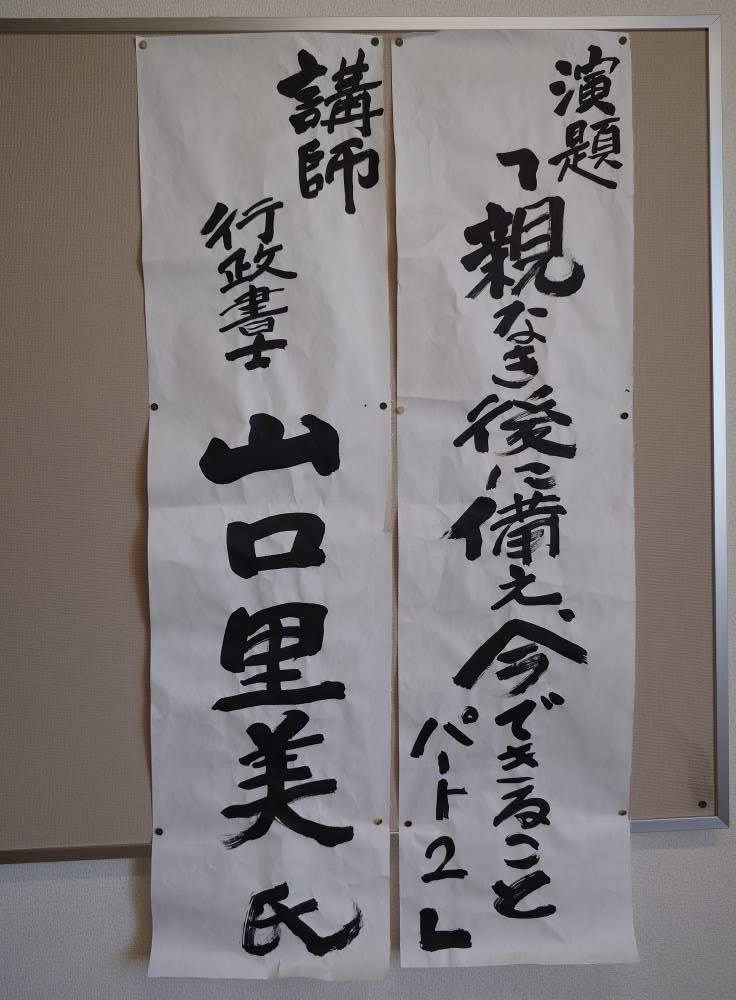 演題
「親なき後に備え、今できること
パート2」
講師
行政書士
山口里美氏